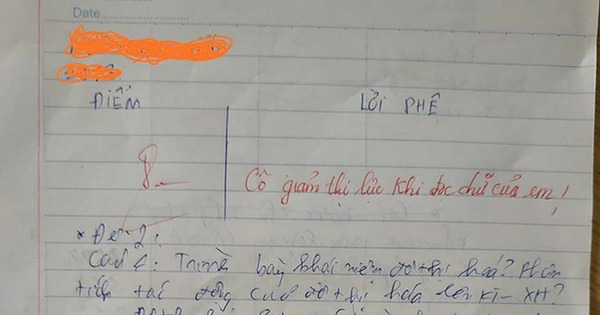 Date
ĐIỂM
LỜI PHÊ
8.-
Cô giảm thị lực khi đọc chữ của em!
* Đề 2:
Câu 1: Trình bày khái niệm đô thị hoá? Phân
tích tác động của đô thị hoá đến KT-XH?